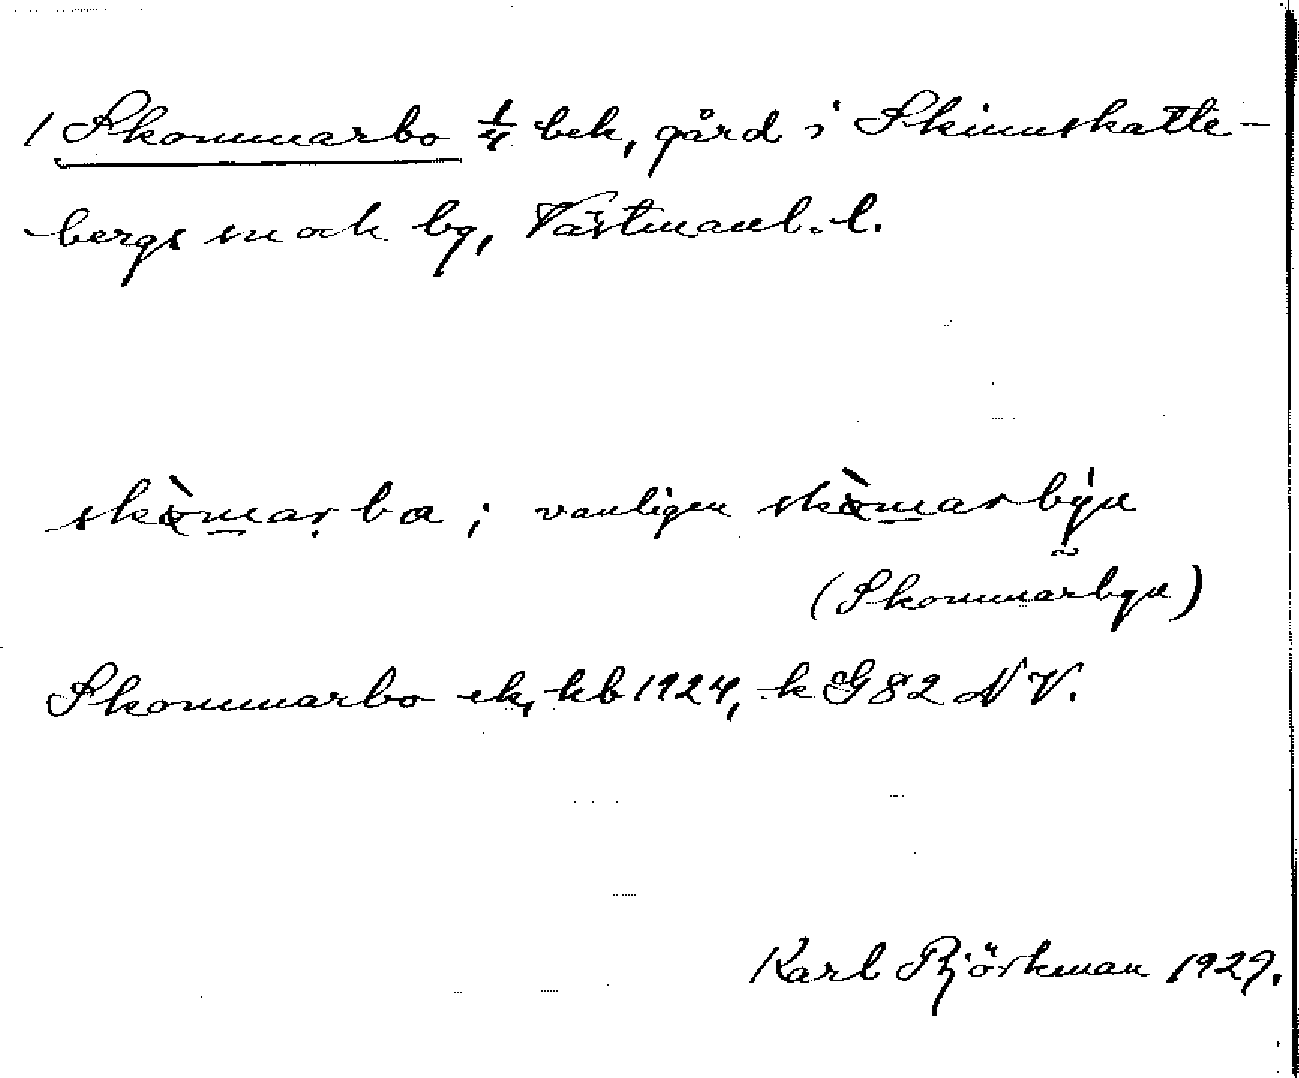 1 Skommarbo 1/4 bek, gård i Skinnskatte-
-bergs sn och by, Västmanl. l.
skòmarba; vanligen skòmarbýn
(Skommarbyn)
Skommarbo ek, kb 1924, k G82 NV.
Karl Björkman 1929.